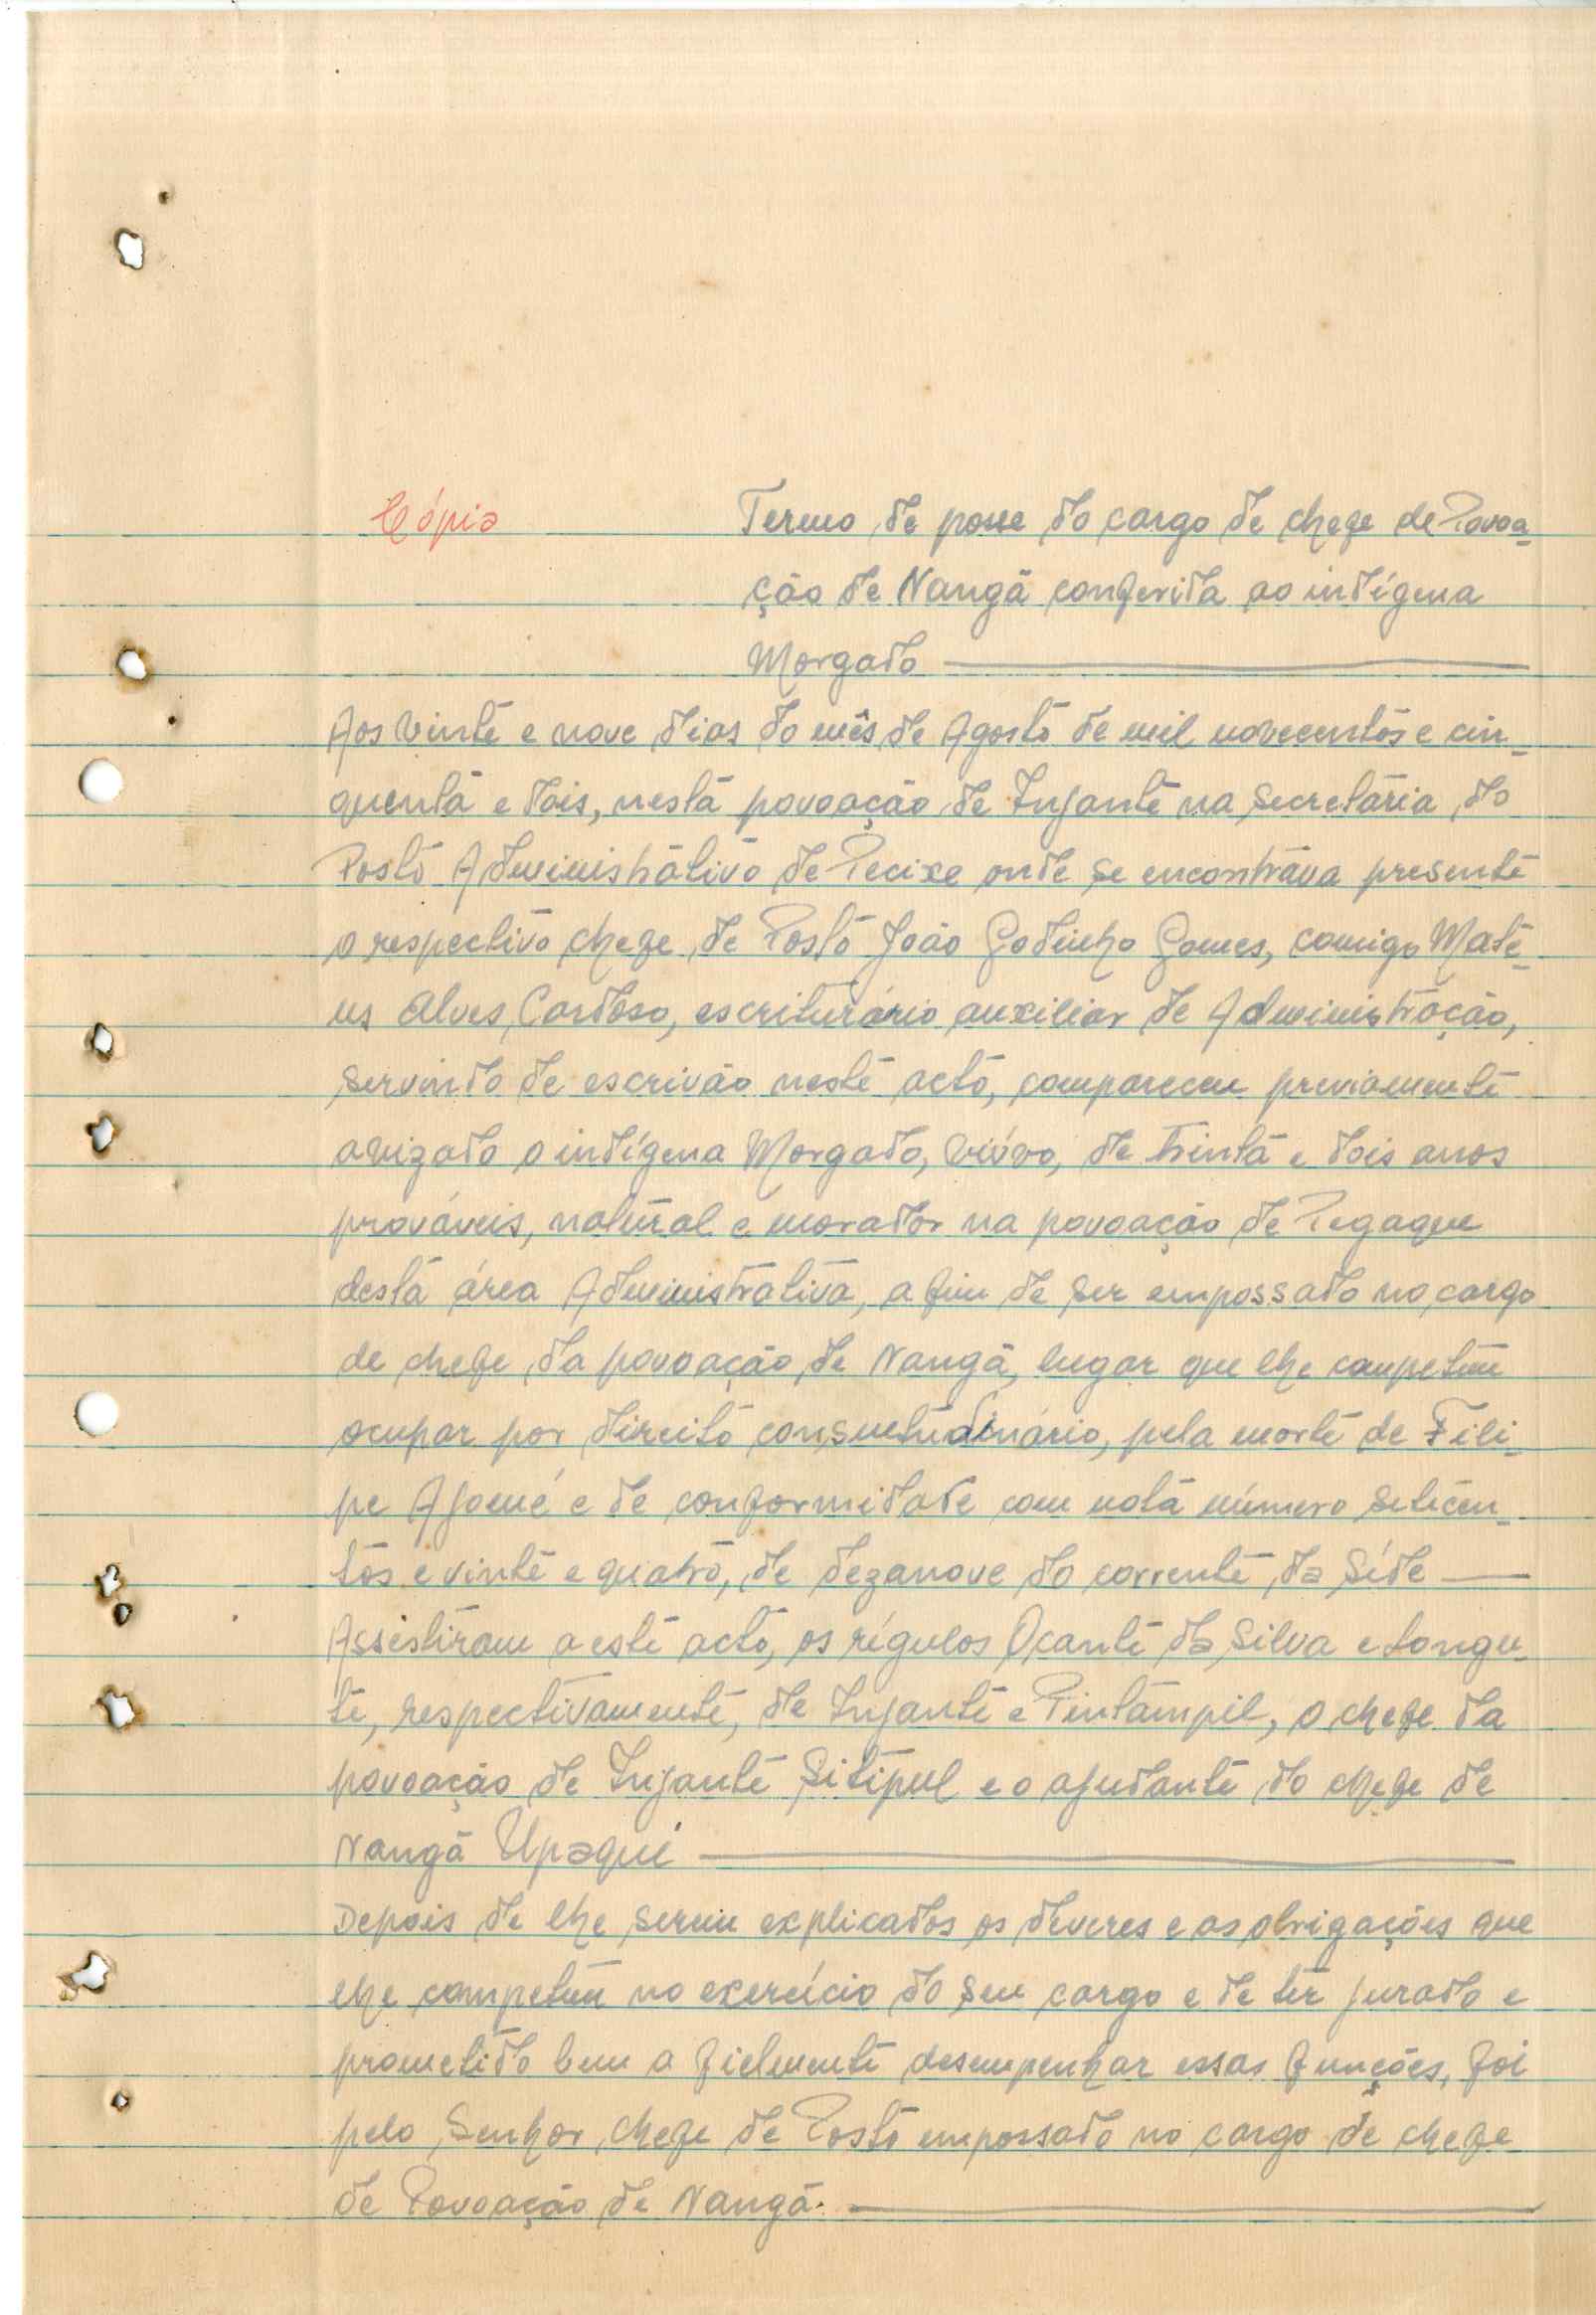 Cópia
Termo de posse do cargo de chefe de Povoa-
ção de Nangã conferida ao indígena
Morgado
Aos vinte e nove dias do mês de Agosto de mil novecentos e cin-
quenta e dois, nesta povoação de Injante na Secretaria do
Posto Administrativo de Pecixe onde se encontrava presente
o respectivo chefe de Posto João Godinho Gomes, comigo Mate-
us Alves Cardoso, escriturário auxiliar de Administração,
servindo de escrivão neste acto, compareceu previamente
avizado o indígena Morgado, viúvo, de trinta e dois anos
prováveis, natural e morador na povoação de Pegaque
desta área Administrativa, a fim de ser empossado no cargo
de chefe da povoação de Nangã, lugar que lhe competem
ocupar por direito consuetudinário, pela morte de Fili-
pe Ajomé e de conformidade com nota número setecen-
tos e vinte e quatro, de dezanove do corrente, da Séde
Assistiram a este acto, os régulos Ocante da Silva e Longu-
te, respectivamente, de Injante e Pintampil, o chefe da
povoação de Injante Sitipul e o ajudante do chefe de
Nangã Upaqui
Depois de lhe serem explicados os deveres e as obrigações que
lhe competem no exercício do seu cargo e de ter jurado e
prometido bem a fielmente desempenhar essas funções, foi
pelo Senhor chefe de Posto empossado no cargo de chefe
de Povoação de Nangã.